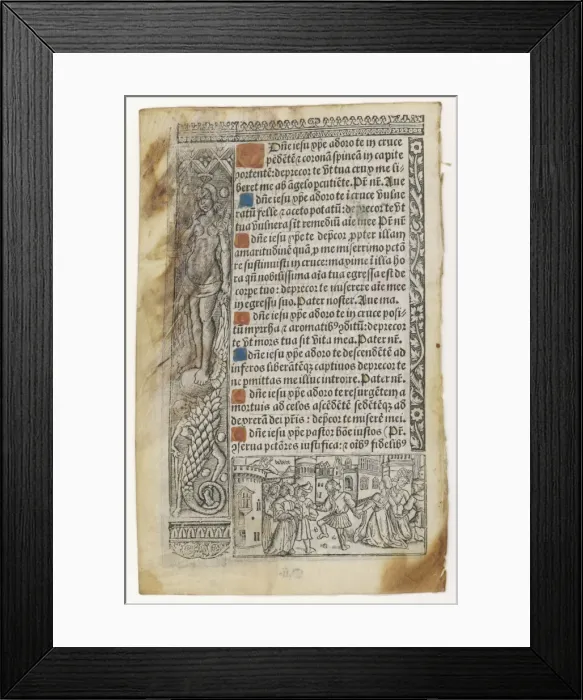 Dñe iesu xp̄e adoro te in cruce
pēdētē ⁊ coronā spineā in capite
portentē: deprecor te vt tua crux me li-
beret me ab āgelo ꝑcutiēte. Pr̄ nr̄. Aue
dñe iesu xp̄e adoro te ī cruce vulne
ratū felle ⁊ aceto potatū: deprecor te vt
tua vulnera sint remediū aīe mee Pr̄ nr̄
dñe iesu xp̄e te dep̄cor ꝓpter illam
amaritudinē quā ꝓ me miserrimo pctō
re sustinuisti in cruce: maxime ī illa ho
ra qn̄ nobilissima aīa tua egressa est de
corpe tuo: deprecor te miserere aīe mee
in egressu suo. Pater noster. Aue ma.
dñe iesu xp̄e adoro te in cruce posi-
tū myrrha ⁊ aromatibꝰ ꝯditū: deprecor
te vt mors tua sit vita mea. Pater nr̄.
dñe iesu xp̄e adoro te descendētē ad
inferos liberātēqꝫ captiuos deprecor te
ne pmittas me illuc introire. Pater nr̄.
dñe iesu xp̄e adoro te resurgētem a
mortuis ad celos ascēdētē sedētēqꝫ ad
dexterā dei pr̄is: deprecor te miserē mei.
dñe iesu xp̄e pastor bōe iustos (Pr̄.
ꝯserua pctōres iustifica: ⁊ oībꝰ fidelibꝰ